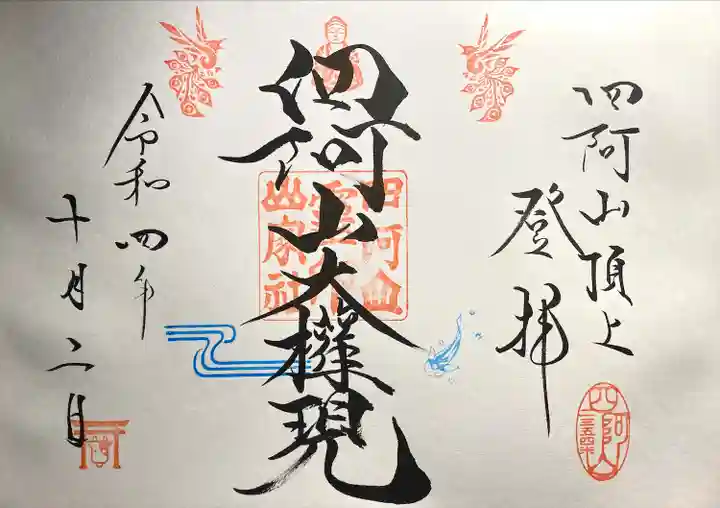 四阿山頂上
登拝
四阿山大権現
令和四年
十月二日
四阿山
三五四米